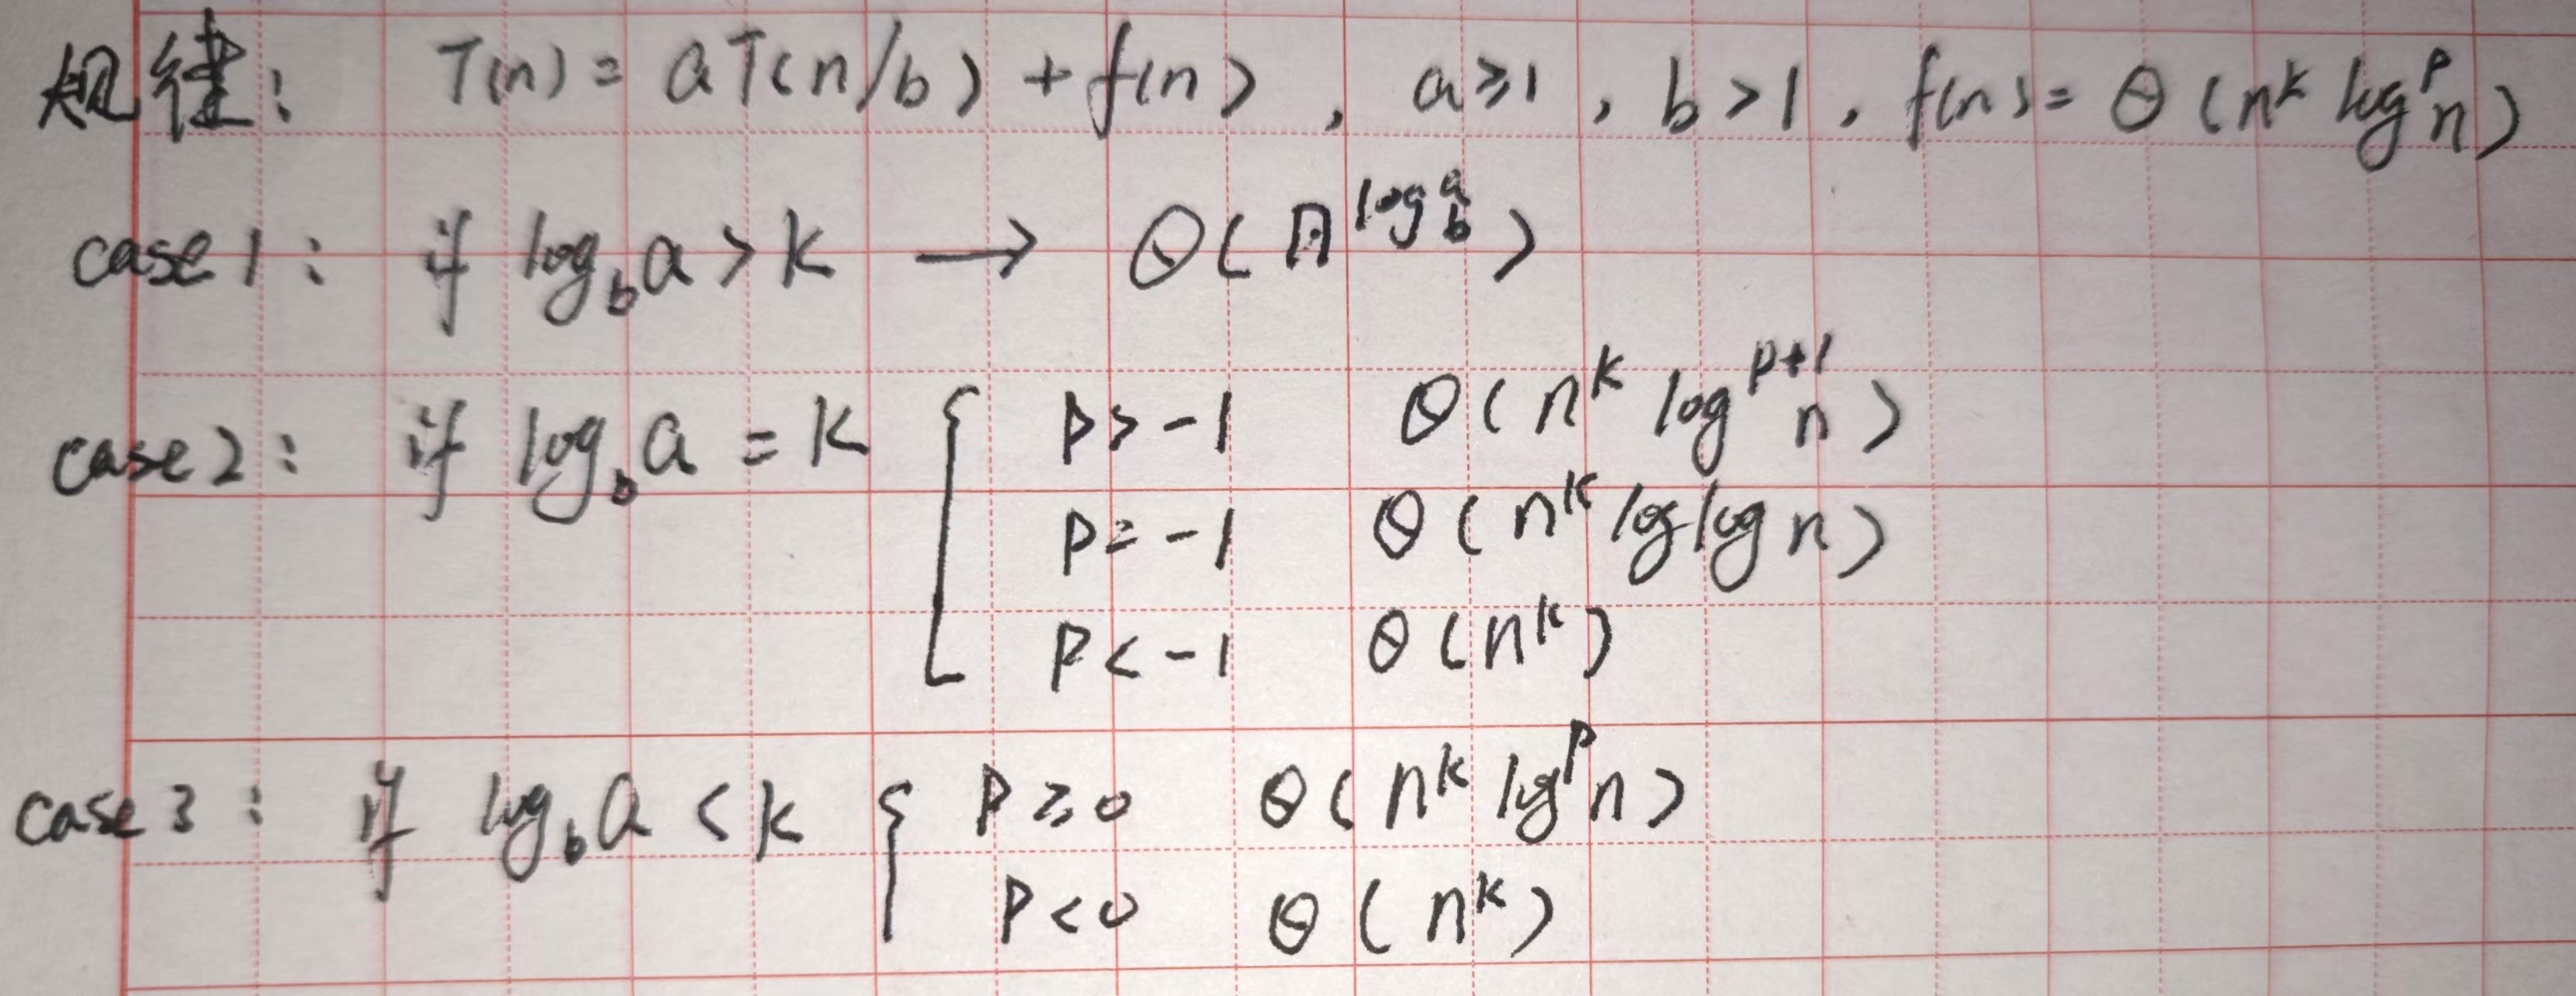 规律: T(n) = aT(n/b) + f(n), a≥1, b>1, f(n) = Θ(n^k log^p n)
case1: if log_b a > k → Θ(n^{log_b^a})
case2: if log_b a = k { p > -1 Θ(n^k log^{p+1} n)
p = -1 Θ(n^k log log n)
p < -1 Θ(n^k)
case3: if log_b a < k { p ≥ 0 Θ(n^k log^p n)
p < 0 Θ(n^k)